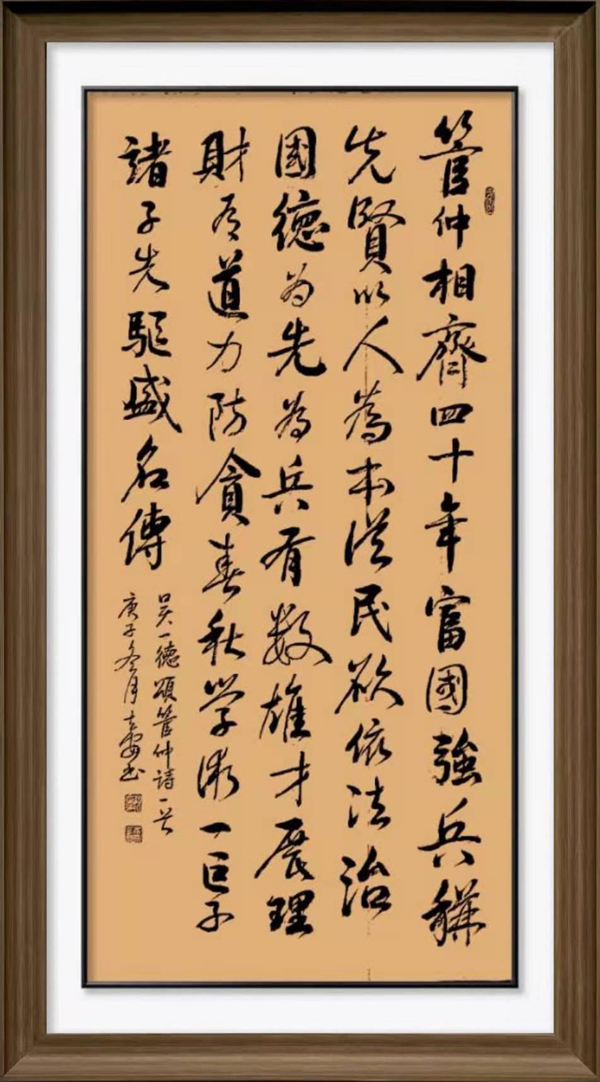 管仲相齊四十年富國強兵稱
先賢以人為本從民欲依法治
國德为先為兵有数雄才展理
財有道力防貪春秋学術一巨子
諸子先驅盛名傳
吴一德頌管仲詩一首
庚子冬月书